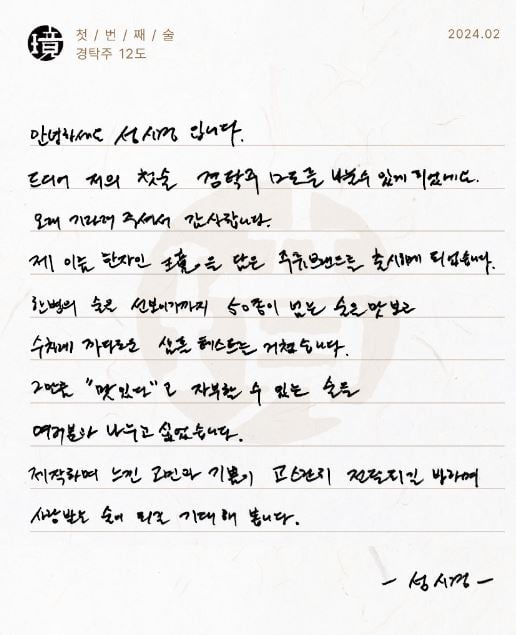 境 첫 / 번 / 째 / 술 2024.02
경탁주 12도
안녕하세요 성시경 입니다.
드디어 저의 첫술 경탁주 12도를 나눌수 있게 되었네요.
오래 기다려 주셔서 감사합니다.
제 이름 한자인 를 담은 주류브랜드를 출시하게 되었습니다.
한병의 술을 선보이기까지 50종이 넘는 술을 맛보고
수차례 까다로운 샘플 테스트를 거쳤습니다.
그만큼 "맛있다"고 자부할 수 있는 술을
여러분과 나누고 싶었습니다.
제작하며 느낀 고민과 기쁨이 고스란히 전달되길 바라며
사랑받는 술이 되길 기대해 봅니다.
- 성시경 -